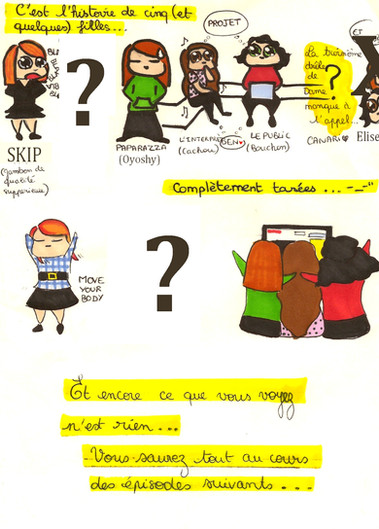 C'est l'histoire de cinq (et
quelques) filles...
PROJET
BLA
BLA
BLA
BLA
?
La troisième
drôle
de
Dame
manque à
l'appel...
?
SKIP
(Jambon de
qualité
supérieure)
PAPARAZZA
(Oyoshy)
(Cachou)
GEN
LE PUBLIC
(Bouchon)
CANARI
Elise
Complètement tarées ... -_-"
MOVE
YOUR
BODY
?
Et encore ce que vous voyez
n'est rien...
Vous saurez tout au cours
des épisodes suivants...